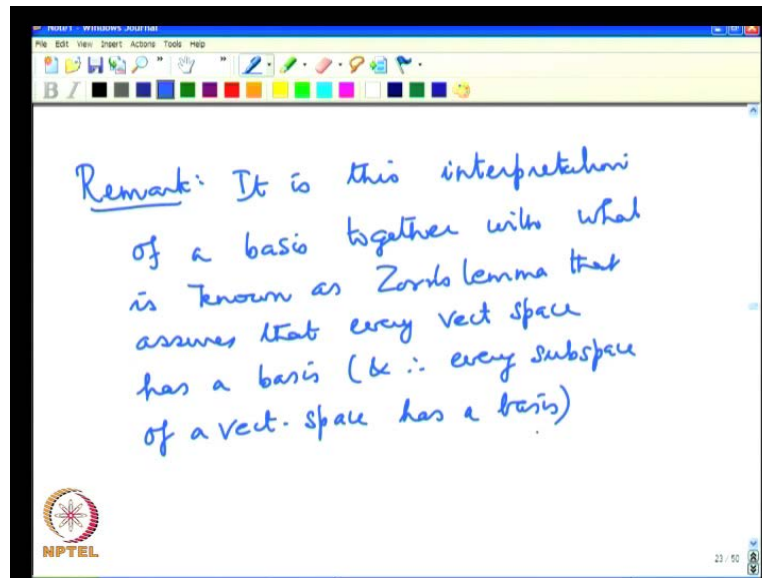 Note1 - Windows Journal
File Edit View Insert Actions Tools Help
B I
Remark: It is this interpretation
of a basis together with what
is known as Zorn's lemma that
assures that every vect space
has a basis (& ∴ every subspace
of a vect. space has a basis)
NPTEL
23 / 50